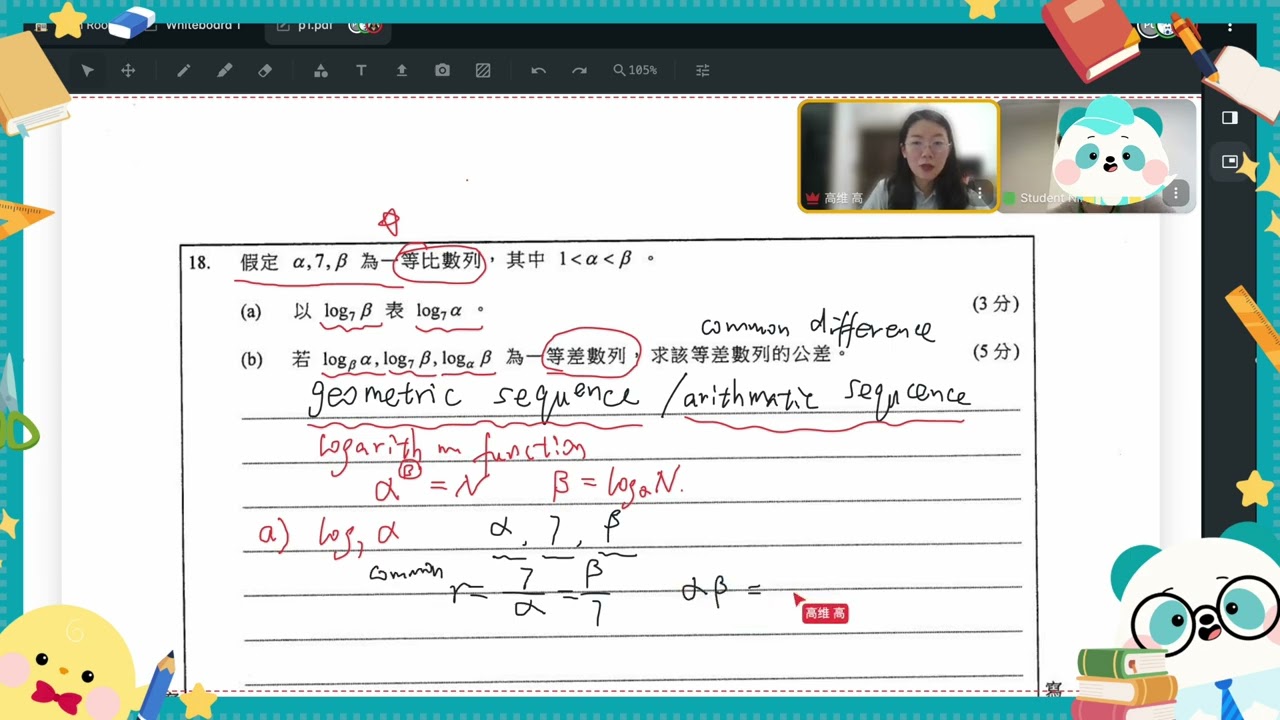 Whiteboard 1
p1.pdf
105%
高维 高
Student
18. 假定 α, 7, β 為一等比數列，其中 1 < α < β 。
(a) 以 log₇ β 表 log₇ α 。 (3 分)
common difference
(b) 若 log_β α, log₇ β, log_α β 為一等差數列，求該等差數列的公差。 (5 分)
geometric sequence / arithmatic sequcence
logarithm function
α^β = N β = log_α N.
a) log₇ α α, 7, β
common r = 7/α = β/7 αβ =
高维 高
6
寫